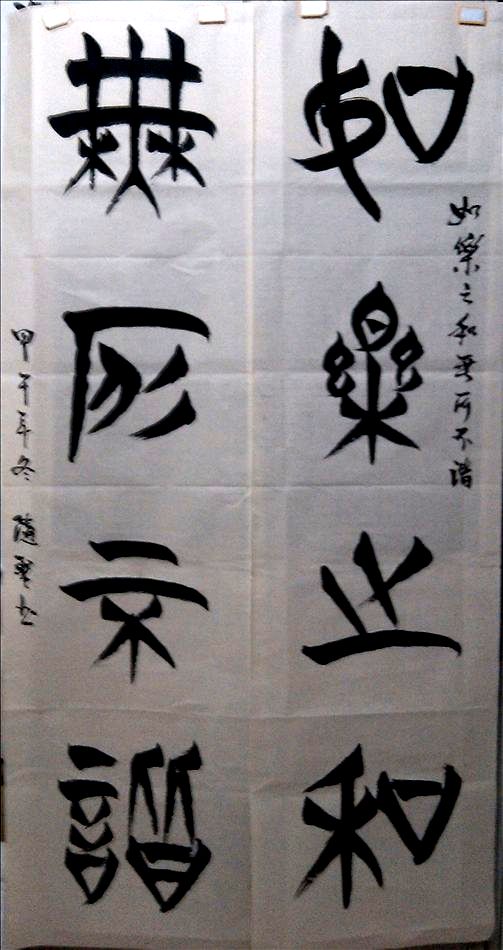 如樂之和
無所不諧
如樂之和無所不諧
甲午年冬 隨